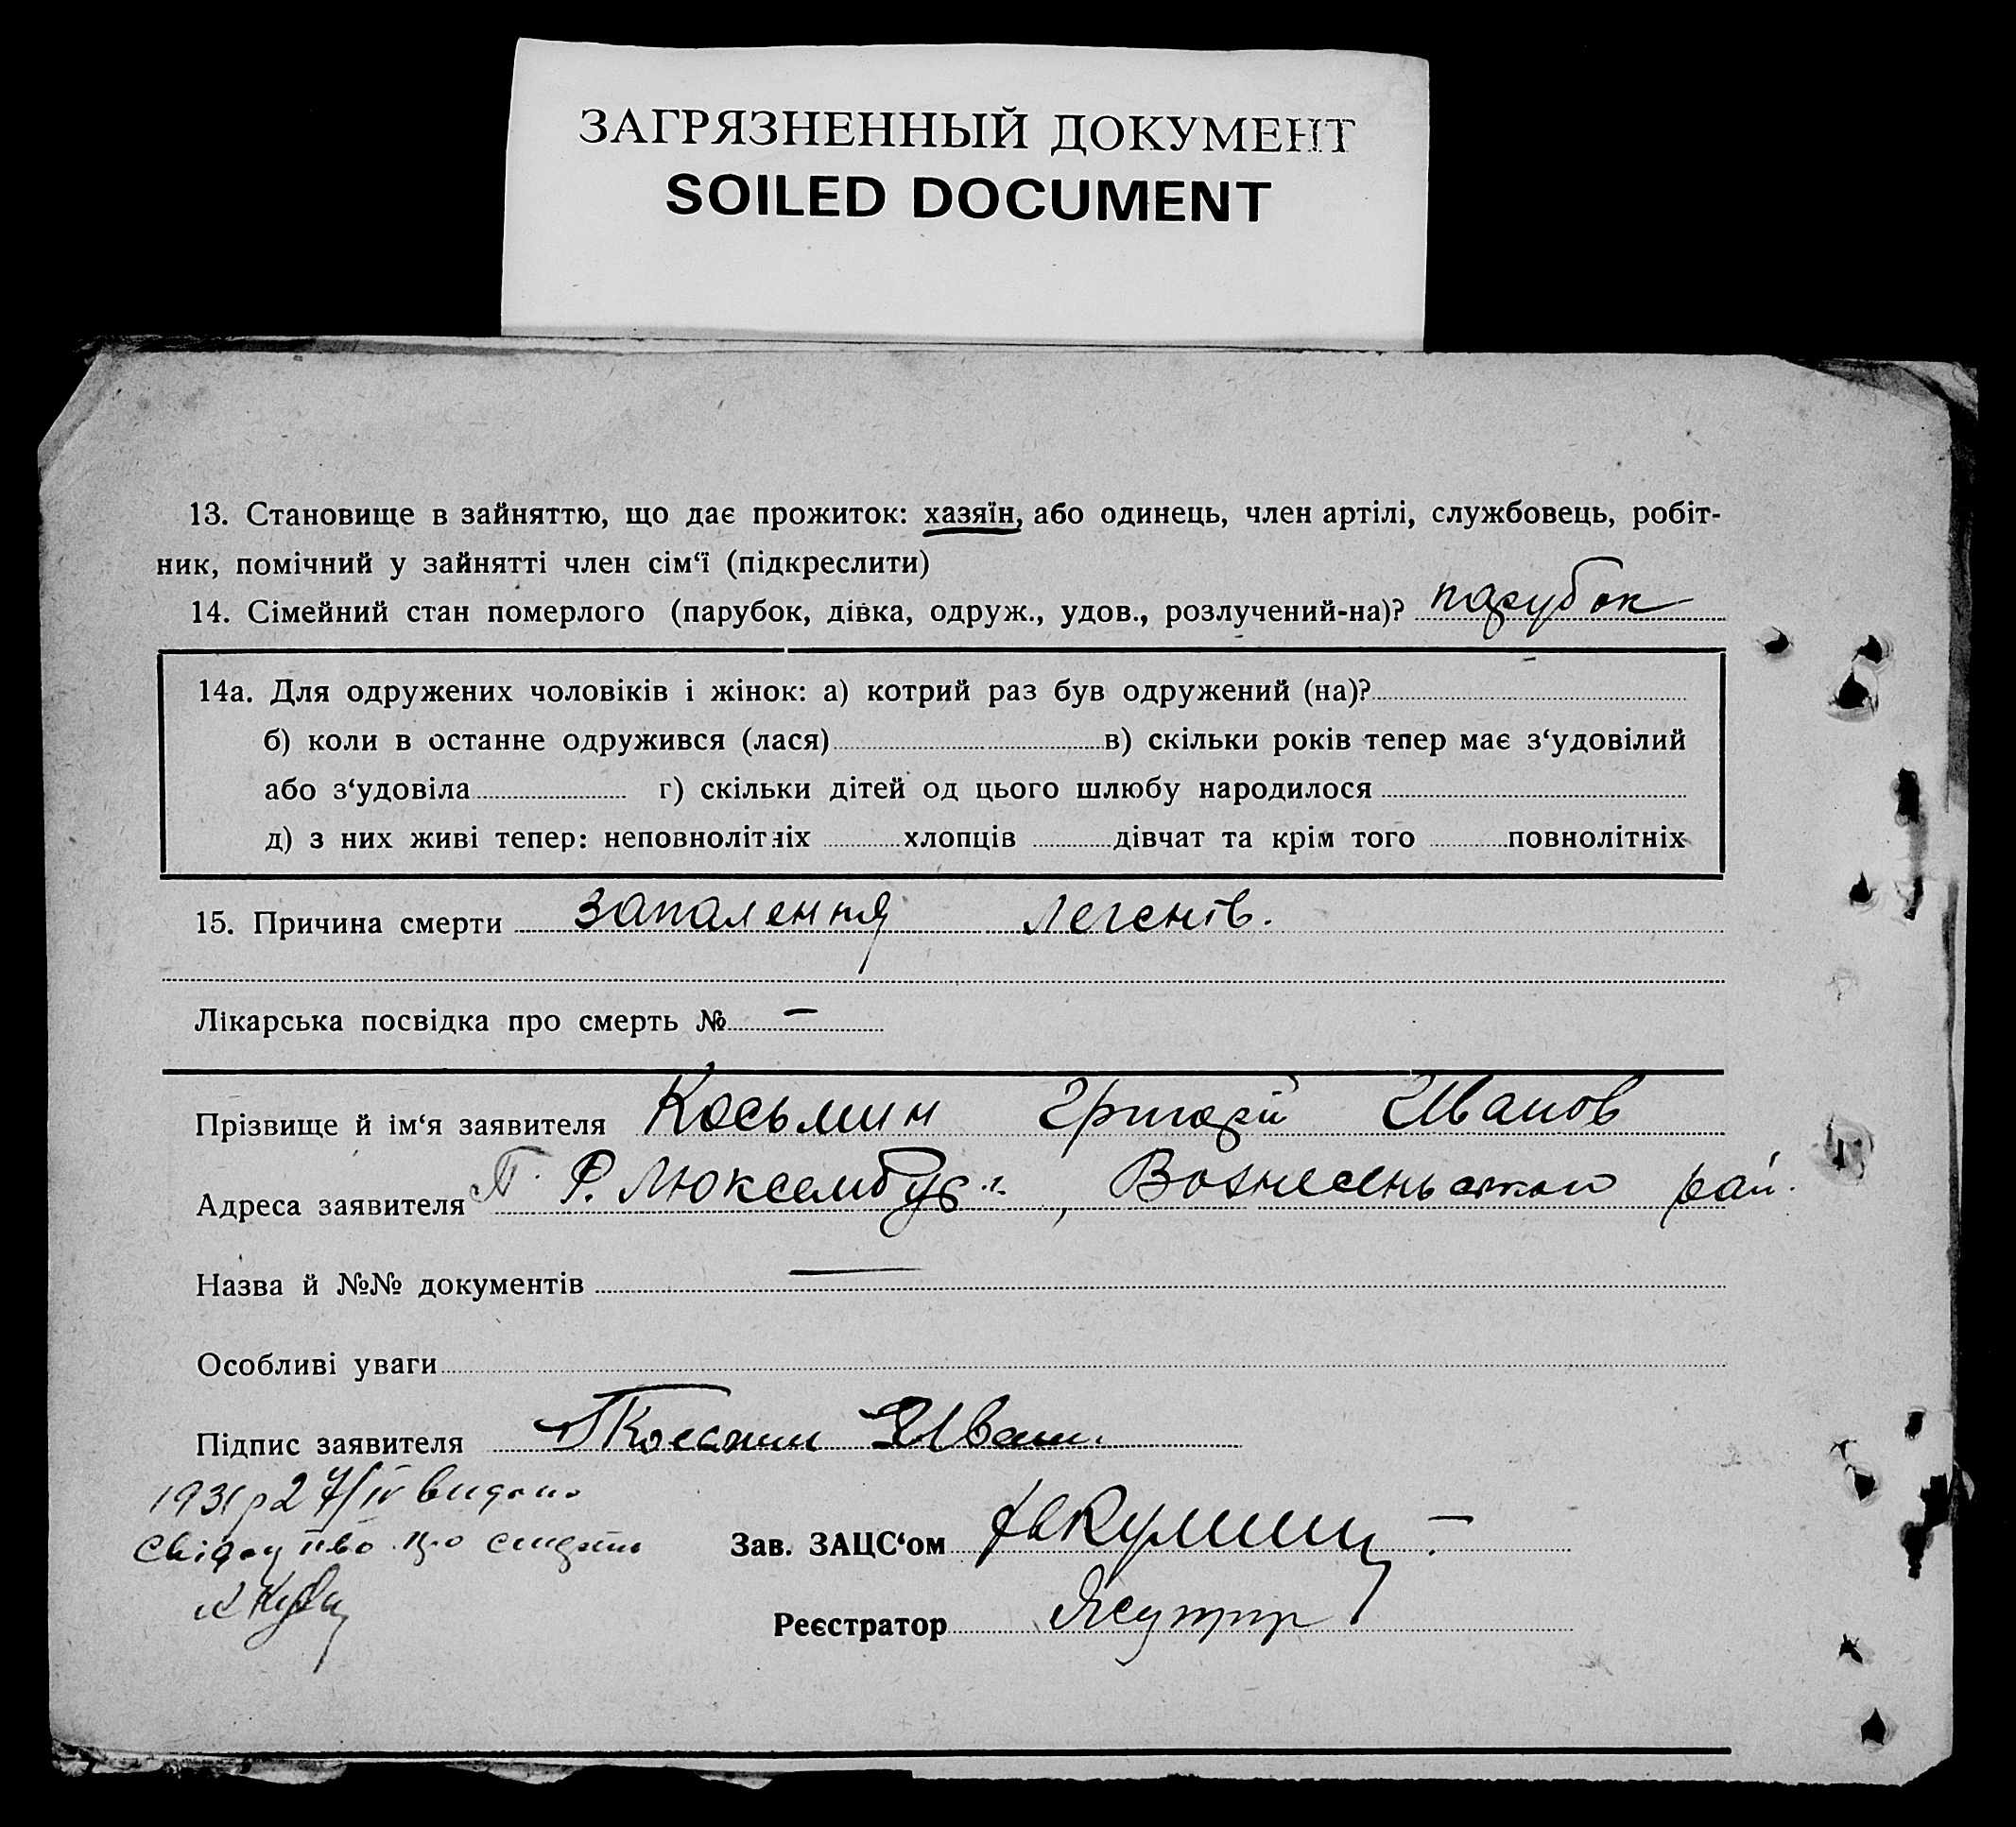 ЗАГРЯЗНЕННЫЙ ДОКУМЕНТ
SOILED DOCUMENT
13. Становище в зайняттю, що дає прожиток: хазяїн, або одинець, член артілі, службовець, робіт-
ник, помічний у зайнятті член сім‘ї (підкреслити)
14. Сімейний стан померлого (парубок, дівка, одруж., удов., розлучений-на)? парубок
14а. Для одружених чоловіків і жінок: а) котрий раз був одружений (на)?
б) коли в останне одружився (лася) в) скільки років тепер має з‘удовілий
або з‘удовіла г) скільки дітей од цього шлюбу народилося
д) з них живі тепер: неповнолітніх хлопців дівчат та крім того повнолітніх
15. Причина смерти запалення легенів.
Лікарська посвідка про смерть № —
Прізвище й ім‘я заявителя Косьмин Григорій Иванов
Адреса заявителя П. Р. Люксембург., Вознесенського рай.
Назва й №№ документів —
Особливі уваги
Підпис заявителя Иван
1931 р 27/IV видано
про
Зав. ЗАЦС‘ом
Реєстратор